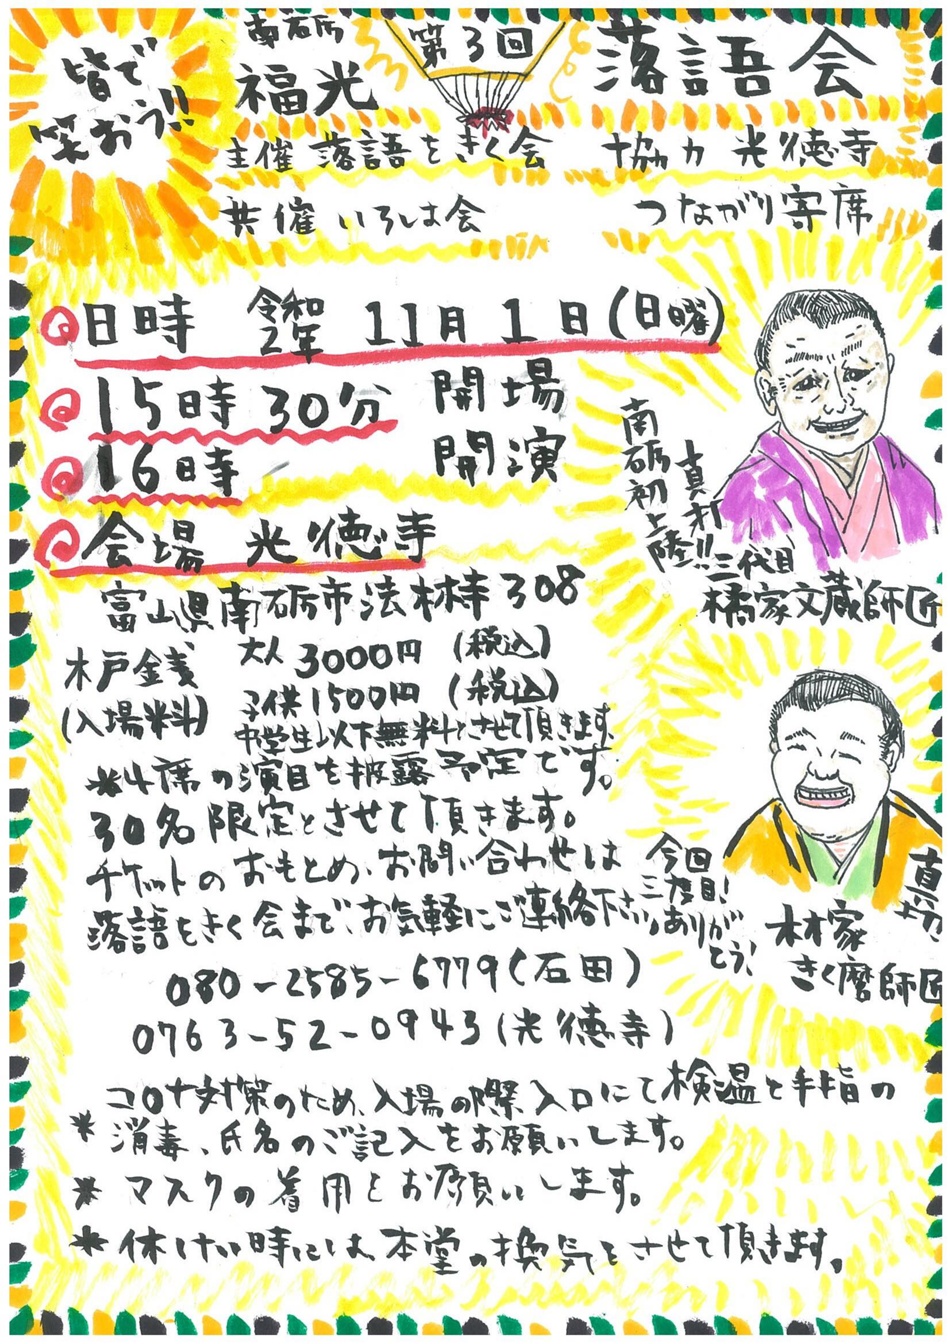 皆で
笑おう!!
南砺
福光
第3回
落語会
主催 落語をきく会 協力 光徳寺
共催 いろは会 つながり寄席
日時 令和2年 11月1日(日曜)
15時30分 開場
16時 開演
会場 光徳寺
富山県南砺市法林寺308
木戸銭
(入場料)
大人 3000円 (税込)
子供 1500円 (税込)
中学生以下無料とさせて頂きます
*4席の演目を披露予定です。
30名限定とさせて頂きます。
チケットのおもとめ、お問い合わせは
落語をきく会まで、お気軽にご連絡下さい
080-2585-6779(石田)
0763-52-0943(光徳寺)
南砺初上陸
真打!!
三代目
橘家文蔵師匠
今回
三度目!
ありが
とう!
真打
林家
きく麿師匠
* コロナ対策のため、入場の際入口にて検温と手指の
消毒、氏名のご記入をお願いします。
* マスクの着用とお願いします。
* 休けい時には、本堂の換気をさせて頂きます。